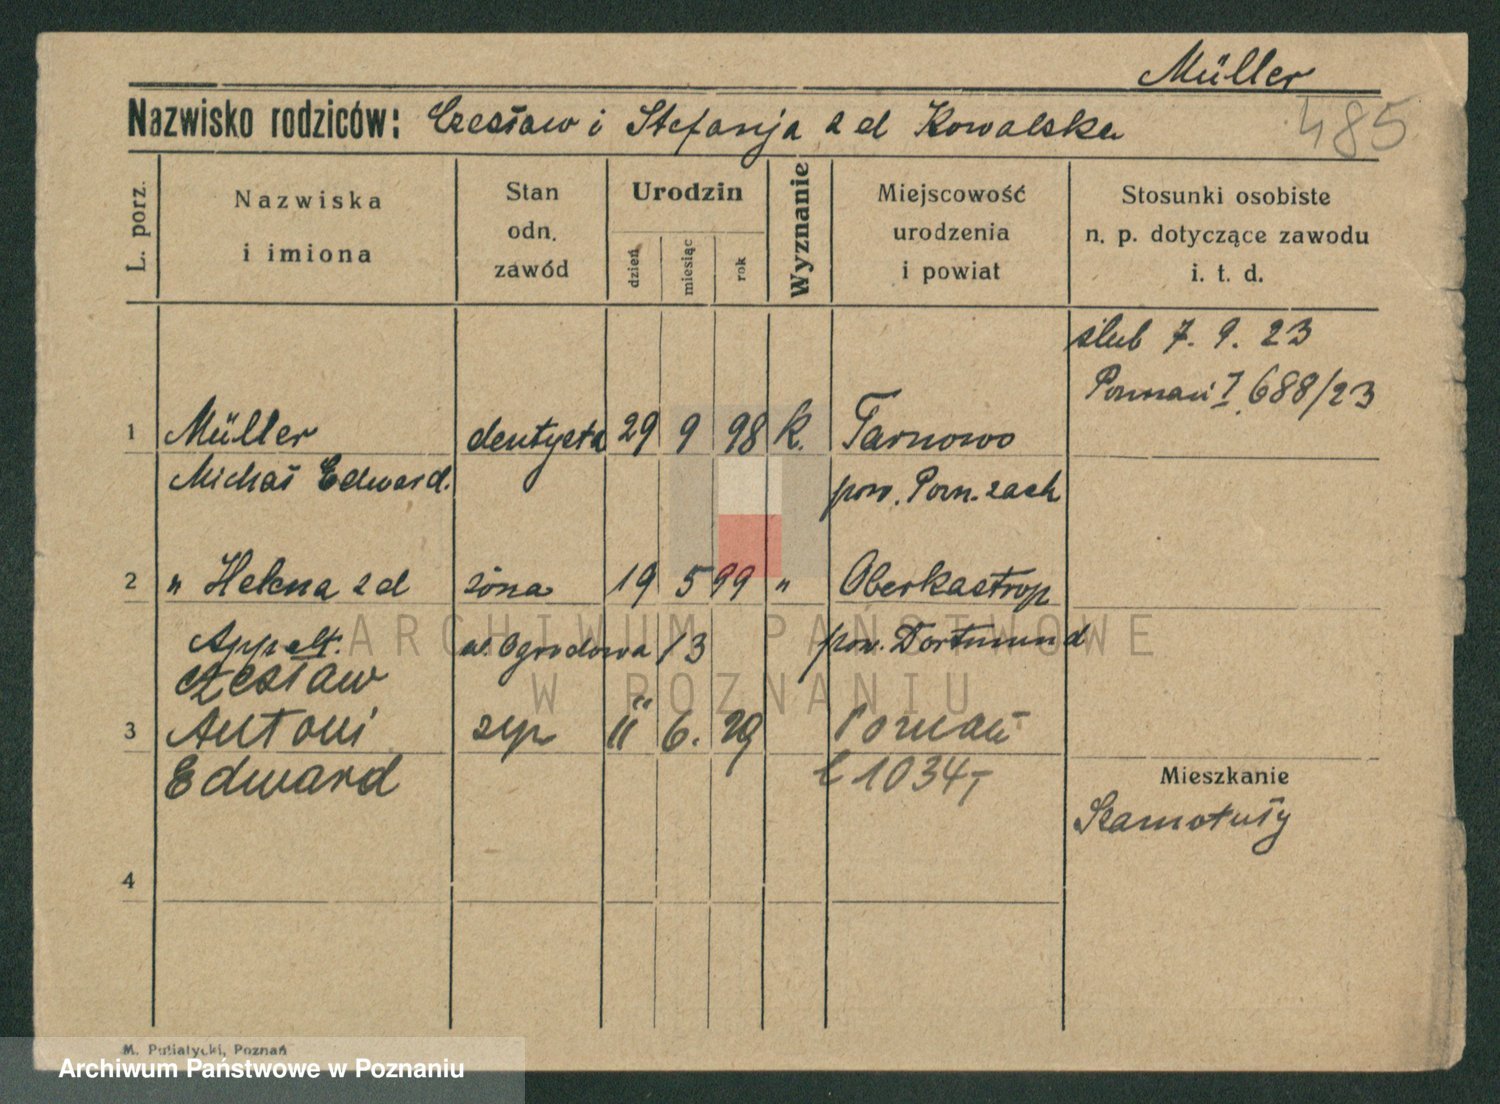 Müller
485
Nazwisko rodziców: Czesław i Stefanja z d Kowalska
L. porz.
Nazwiska i imiona
Stan odn. zawód
Urodzin
dzień miesiąc rok
Wyznanie
Miejscowość urodzenia i powiat
Stosunki osobiste n. p. dotyczące zawodu i. t. d.
ślub 7. 9. 23
Poznań I 688/23
1 Müller dentysta 29 9 98 k. Tarnowo
Michał Edward. pow. Pozn. zach
2 " Helena z d żona 19 5 99 " Oberkastrop
Appelt. ul. Ogrodowa 13 pow. Dortmund
Czesław
3 Antoni syn 11 6. 29 Poznań
Edward 1034,-
Mieszkanie
Szamotuły
4
M. Putiatycki, Poznań
ARCHIWUM PAŃSTWOWE
W POZNANIU
Archiwum Państwowe w Poznaniu